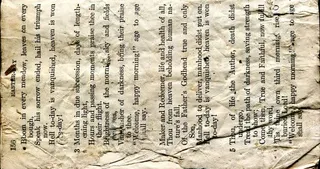 156 EASTERTIDE
2 Bloom in every meadow, leaves on every
bough,
Speak his sorrow ended, hail his triumph
now;
Hell to-day is vanquished, heaven is won
to-day!
3 Months in due succession, days of length-
ening light,
Hours and passing moments praise thee in
their flight.
Brightness of the morning, sky and fields
and sea,
Vanquisher of darkness, bring their praise
to thee;
"Welcome, happy morning!" age to age
shall say.
4 Maker and Redeemer, life and health of all,
Thou from heaven beholding human na-
ture's fall,
Of the Father's Godhead true and only
Son,
Manhood to deliver, manhood didst put on.
Hell to-day is vanquished, heaven is won
to-day!
5 Thou, of life the Author, death didst
undergo,
Tread the path of darkness, saving strength
to show;
Come then, True and Faithful, now fulfil
thy word,
'Tis thine own third morning, rise, O
buried Lord!
"Welcome, happy morning!" age to age
shall say.